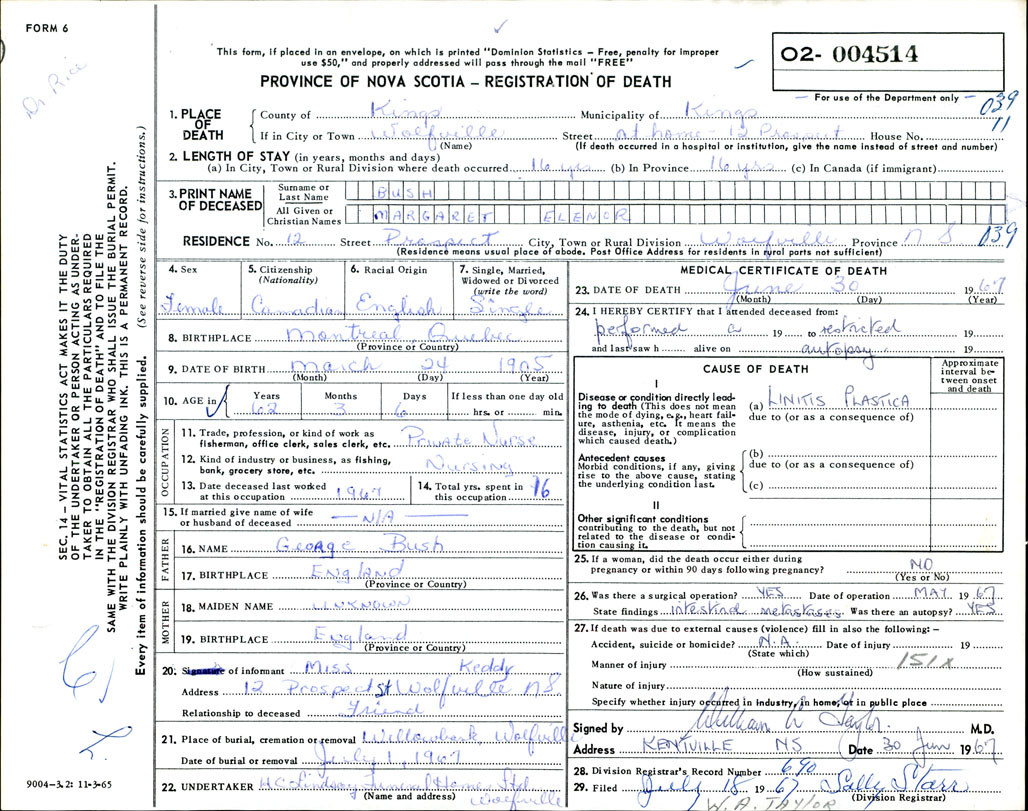 FORM 6
Dr Rice
This form, if placed in an envelope, on which is printed "Dominion Statistics – Free, penalty for improper
use $50," and properly addressed will pass through the mail "FREE"
O2- 004514
PROVINCE OF NOVA SCOTIA – REGISTRATION OF DEATH
For use of the Department only
039
11
1. PLACE OF DEATH
County of Kings Municipality of Kings
If in City or Town Wolfville Street at home – 12 Prospect House No.
(Name) (If death occurred in a hospital or institution, give the name instead of street and number)
2. LENGTH OF STAY (in years, months and days)
(a) In City, Town or Rural Division where death occurred 16 yrs (b) In Province 16 yrs (c) In Canada (if immigrant)
3. PRINT NAME OF DECEASED
Surname or Last Name BUSH
All Given or Christian Names MARGARET ELENOR
RESIDENCE No. 12 Street Prospect City, Town or Rural Division Wolfville Province N S 039
(Residence means usual place of abode. Post Office Address for residents in rural parts not sufficient)
4. Sex Female
5. Citizenship (Nationality) Canadian
6. Racial Origin English
7. Single, Married, Widowed or Divorced (write the word) Single
8. BIRTHPLACE Montreal, Quebec
(Province or Country)
9. DATE OF BIRTH March 24 1905
(Month) (Day) (Year)
10. AGE in Years 62 Months 3 Days 6 If less than one day old hrs. or min.
OCCUPATION
11. Trade, profession, or kind of work as fisherman, office clerk, sales clerk, etc. Private Nurse
12. Kind of industry or business, as fishing, bank, grocery store, etc. Nursing
13. Date deceased last worked at this occupation 1967
14. Total yrs. spent in this occupation 16
15. If married give name of wife or husband of deceased – N/A –
FATHER
16. NAME George Bush
17. BIRTHPLACE England
(Province or Country)
MOTHER
18. MAIDEN NAME UNKNOWN
19. BIRTHPLACE England
(Province or Country)
20. Signature of informant Miss Keddy
Address 12 Prospect St Wolfville NS
Relationship to deceased Friend
21. Place of burial, cremation or removal Willowbank, Wolfville
Date of burial or removal July 1, 1967
22. UNDERTAKER H.C. Lindsay Funeral Home Ltd
(Name and address) Wolfville
MEDICAL CERTIFICATE OF DEATH
23. DATE OF DEATH June 30 1967
(Month) (Day) (Year)
24. I HEREBY CERTIFY that I attended deceased from:
performed a 19 to restricted 19
and last saw h alive on autopsy 19
CAUSE OF DEATH
Approximate interval between onset and death
I
Disease or condition directly leading to death (This does not mean the mode of dying, e.g., heart failure, asthenia, etc. It means the disease, injury, or complication which caused death.)
(a) LINITIS PLASTICA
due to (or as a consequence of)
Antecedent causes
Morbid conditions, if any, giving rise to the above cause, stating the underlying condition last.
(b)
due to (or as a consequence of)
(c)
II
Other significant conditions
contributing to the death, but not related to the disease or condition causing it.
25. If a woman, did the death occur either during pregnancy or within 90 days following pregnancy? NO
(Yes or No)
26. Was there a surgical operation? YES Date of operation MAY 1967
State findings intestinal metastases Was there an autopsy? YES
27. If death was due to external causes (violence) fill in also the following: –
Accident, suicide or homicide? N.A. Date of injury 19
(State which)
Manner of injury 151X
(How sustained)
Nature of injury
Specify whether injury occurred in industry, in home, or in public place
Signed by William A Taylor M.D.
Address KENTVILLE NS Date 30 Jun. 1967
28. Division Registrar's Record Number 690
29. Filed July 18 1967 Sally Starr
(Division Registrar)
W.A. TAYLOR
SEC. 14 – VITAL STATISTICS ACT MAKES IT THE DUTY
OF THE UNDERTAKER OR PERSON ACTING AS UNDER-
TAKER TO OBTAIN ALL THE PARTICULARS REQUIRED
IN THE "REGISTRATION OF DEATH" AND TO FILE THE
SAME WITH THE DIVISION REGISTRAR WHO SHALL ISSUE THE BURIAL PERMIT.
WRITE PLAINLY WITH UNFADING INK. THIS IS A PERMANENT RECORD.
Every item of information should be carefully supplied. (See reverse side for instructions.)
9004-3.2: 11-3-65